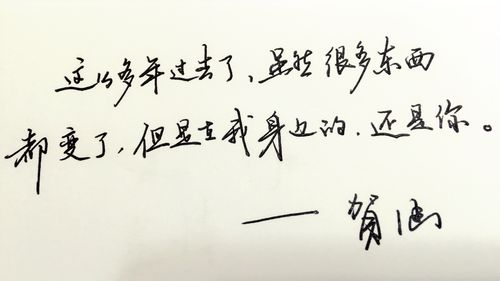 这么多年过去了、虽然很多东西
都变了，但是在我身边的、还是你。
——贺涵